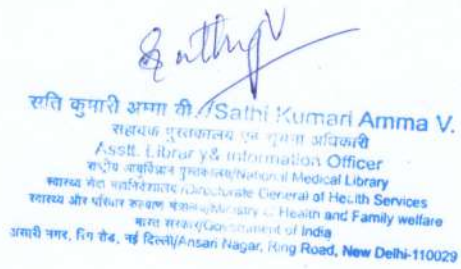 Sathy V
सति कुमारी अम्मा वी./Sathi Kumari Amma V.
सहायक पुस्तकालय एवं सूचना अधिकारी
Asstt. Library & Information Officer
राष्ट्रीय आयुर्विज्ञान पुस्तकालय/National Medical Library
स्वास्थ्य सेवा महानिदेशालय/Directorate General of Health Services
स्वास्थ्य और परिवार कल्याण मंत्रालय/Ministry of Health and Family welfare
भारत सरकार/Government of India
अंसारी नगर, रिंग रोड, नई दिल्ली/Ansari Nagar, Ring Road, New Delhi-110029